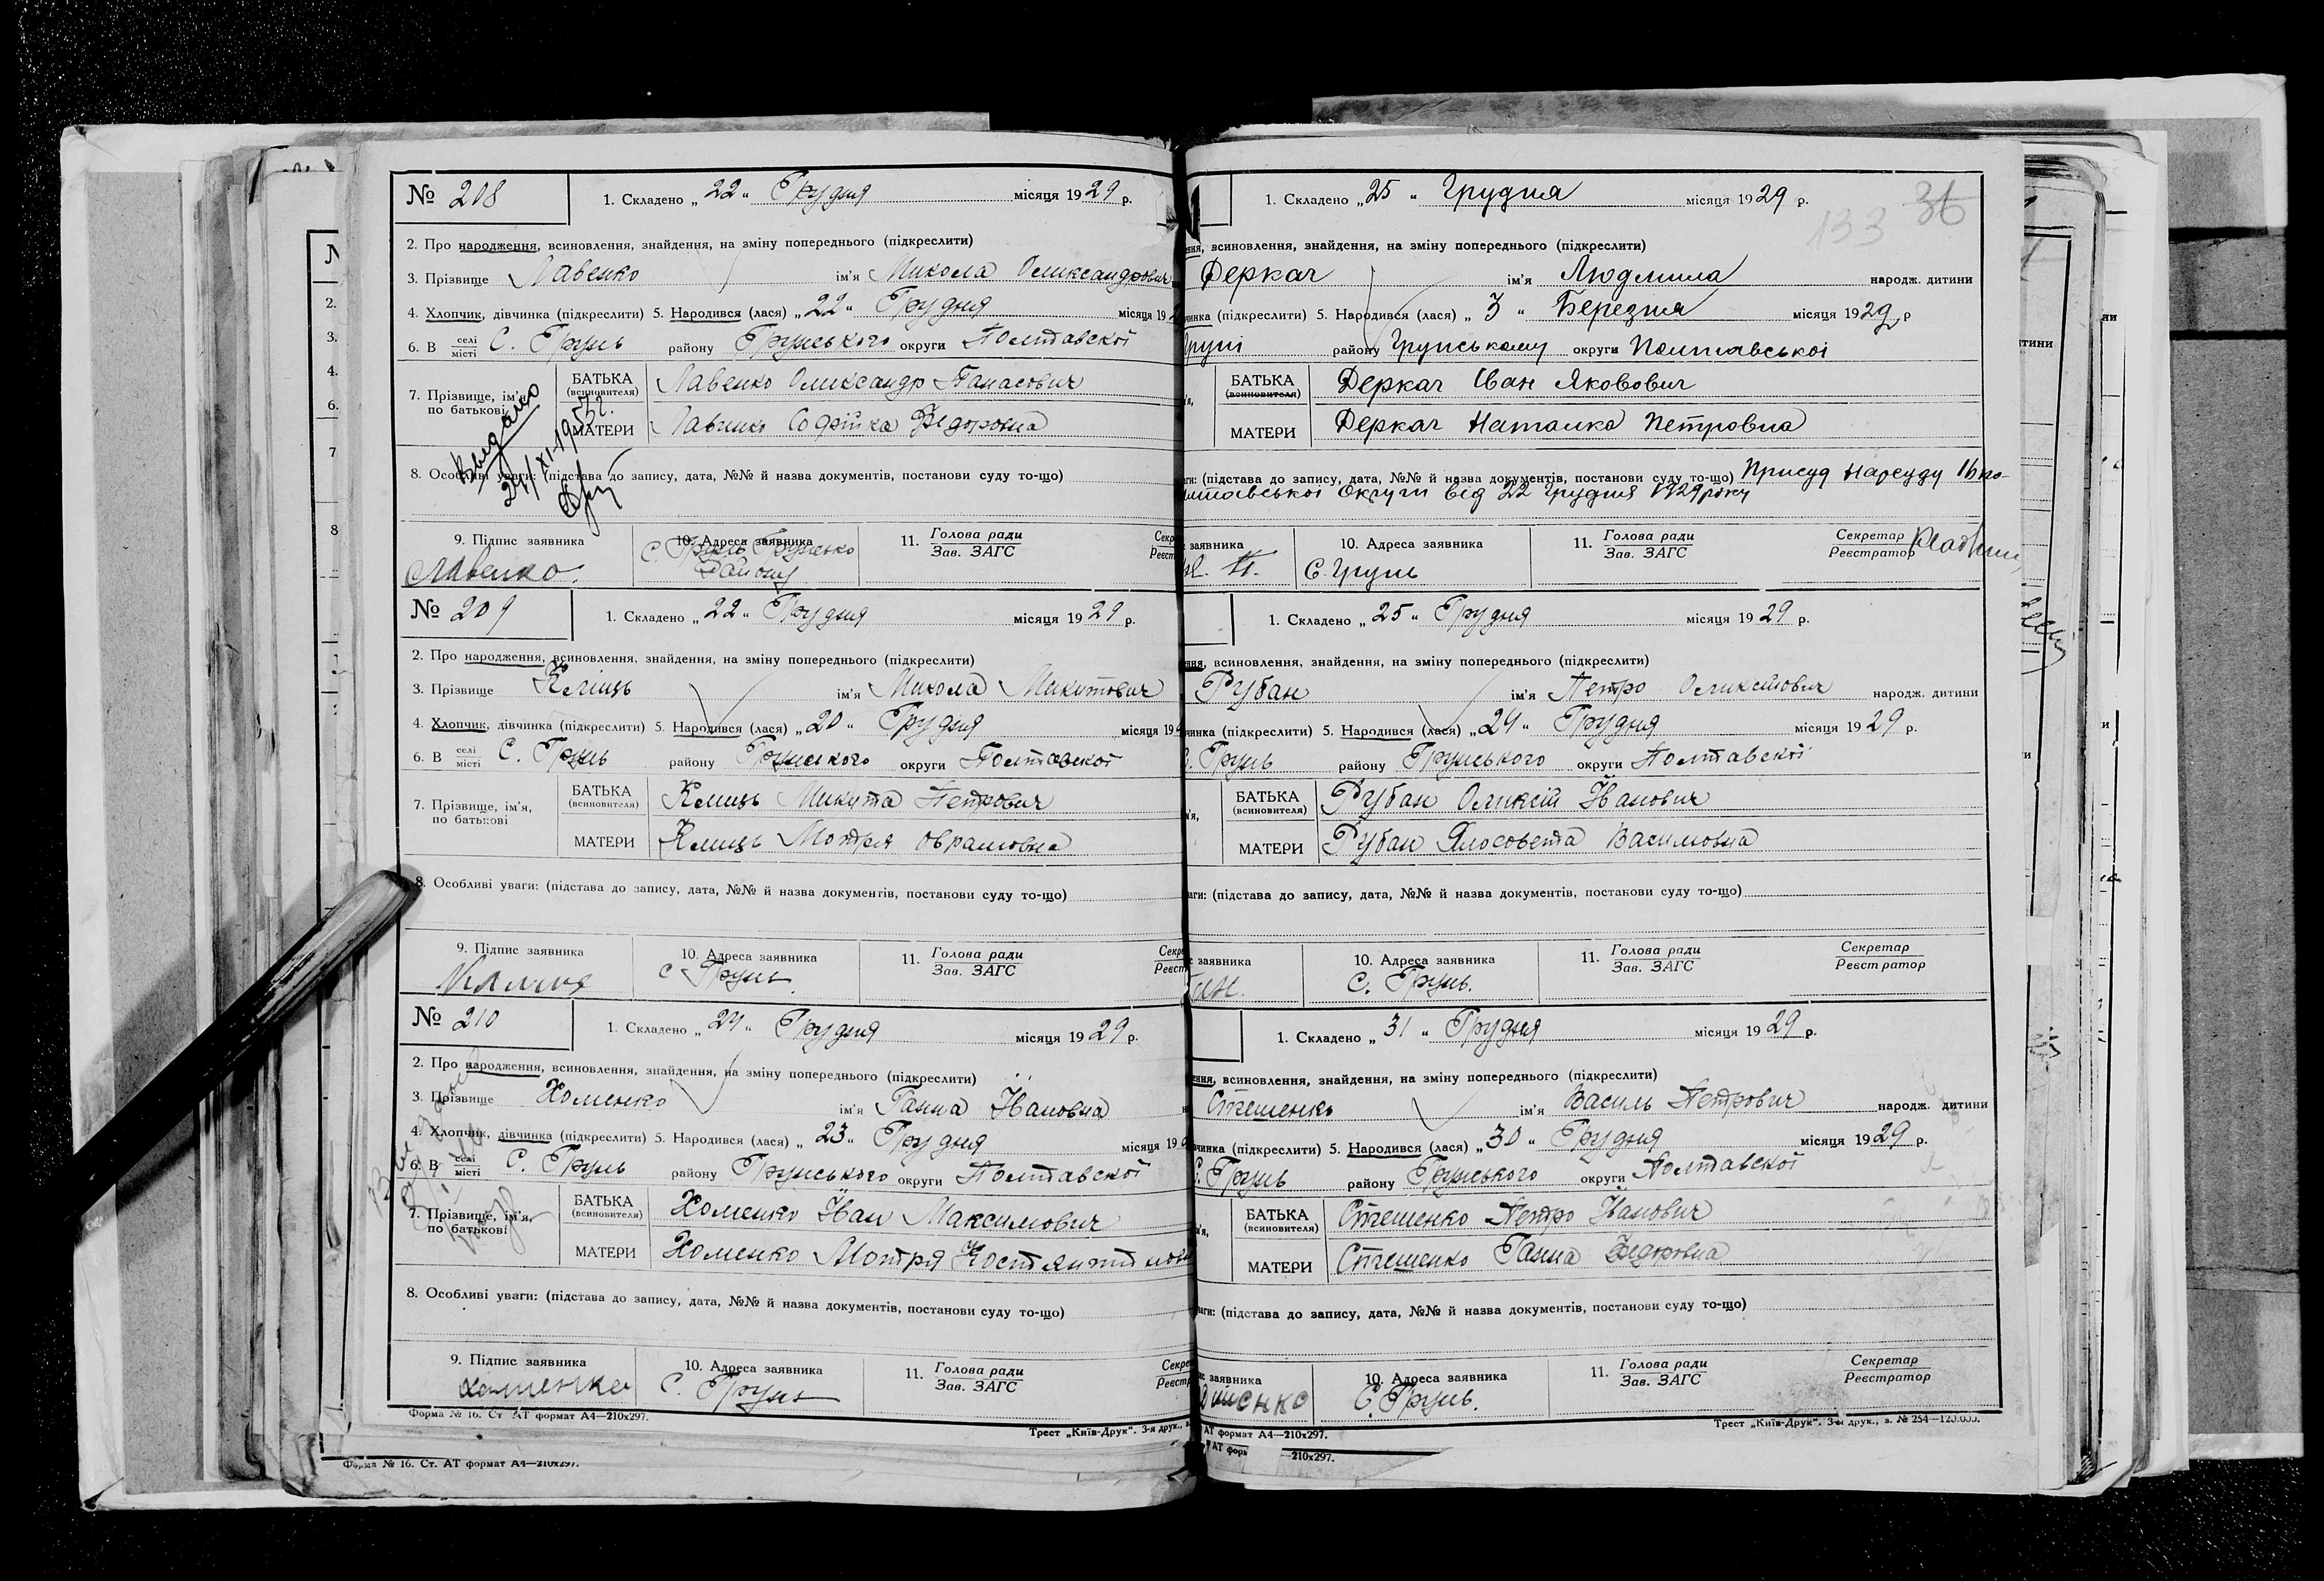 № 208
1. Складено „22“ Грудня місяця 1929 р.
2. Про народження, всиновлення, знайдення, на зміну попереднього (підкреслити)
3. Прізвище Лавенко ім'я Микола Олександрович
4. Хлопчик, дівчинка (підкреслити) 5. Народився (лася) „22“ Грудня місяця 19
6. В селі місті С. Грунь району Грунського округи Полтавскої
7. Прізвище, ім'я, по батькові
БАТЬКА (всиновителя) Лавенко Олександр Панасович
МАТЕРИ Лавенко Софійка Федоровна
Видано
24/XI-1952.
8. Особливі уваги: (підстава до запису, дата, №№ й назва документів, постанови суду то-що)
9. Підпис заявника Лавенко.
10. Адреса заявника С. Грунь Грунсько Району
11. Голова ради Зав. ЗАГС
№ 209
1. Складено „22“ Грудня місяця 1929 р.
2. Про народження, всиновлення, знайдення, на зміну попереднього (підкреслити)
3. Прізвище Клиць ім'я Микола Микитович
4. Хлопчик, дівчинка (підкреслити) 5. Народився (лася) „20“ Грудня місяця 19
6. В селі місті С. Грунь району Грунського округи Полтавскої
7. Прізвище, ім'я, по батькові
БАТЬКА (всиновителя) Клиць Микита Петрович
МАТЕРИ Клиць Мотря Оврамовна
8. Особливі уваги: (підстава до запису, дата, №№ й назва документів, постанови суду то-що)
9. Підпис заявника
10. Адреса заявника С. Грунь
11. Голова ради Зав. ЗАГС
№ 210
1. Складено „24“ Грудня місяця 1929 р.
2. Про народження, всиновлення, знайдення, на зміну попереднього (підкреслити)
3. Прізвище Хоменко ім'я Ганна Івановна
4. Хлопчик, дівчинка (підкреслити) 5. Народився (лася) „23“ Грудня місяця 19
6. В селі місті С. Грунь району Грунського округи Полтавскої
7. Прізвище, ім'я, по батькові
БАТЬКА (всиновителя) Хоменко Іван Максимович
МАТЕРИ Хоменко Мотря Костянтинов
8. Особливі уваги: (підстава до запису, дата, №№ й назва документів, постанови суду то-що)
9. Підпис заявника Хоменко
10. Адреса заявника С. Грунь
11. Голова ради Зав. ЗАГС
Форма № 16. Ст АТ формат А4—210х297.
Трест „Київ-Друк“. 3-я друк.,
Форма № 16. Ст. АТ формат А4—210х297.
1. Складено „25“ Грудня місяця 1929 р.
133 36
всиновлення, знайдення, на зміну попереднього (підкреслити)
Деркач ім'я Людмила народж. дитини
(підкреслити) 5. Народився (лася) „3“ Березня місяця 1929 р
Груні району Грунському округи Полтавської
БАТЬКА (всиновителя) Деркач Іван Якович
МАТЕРИ Деркач Наталка Петровна
(підстава до запису, дата, №№ й назва документів, постанови суду то-що) Присуд Нарсуду 16 По-
лтавської Округи від 22 Грудня 1929 року
заявника
10. Адреса заявника С. Грунь
11. Голова ради Зав. ЗАГС
Секретар Реєстратор
1. Складено „25“ Грудня місяця 1929 р.
всиновлення, знайдення, на зміну попереднього (підкреслити)
Рубан ім'я Петро Оликсійович народж. дитини
(підкреслити) 5. Народився (лася) „24“ Грудня місяця 1929 р.
С. Грунь району Грунського округи Полтавскої
БАТЬКА (всиновителя) Рубан Оликсій Іванович
МАТЕРИ Рубан Ялосовета Василовна
(підстава до запису, дата, №№ й назва документів, постанови суду то-що)
заявника
10. Адреса заявника С. Грунь.
11. Голова ради Зав. ЗАГС
Секретар Реєстратор
1. Складено „31“ Грудня місяця 1929 р.
всиновлення, знайдення, на зміну попереднього (підкреслити)
Стешенко ім'я Василь Петрович народж. дитини
(підкреслити) 5. Народився (лася) „30“ Грудня місяця 1929 р.
С. Грунь району Грунського округи Полтавскої
БАТЬКА (всиновителя) Стешенко Петро Іванович
МАТЕРИ Стешенко Ганна Федоровна
(підстава до запису, дата, №№ й назва документів, постанови суду то-що)
заявника
10. Адреса заявника С. Грунь.
11. Голова ради Зав. ЗАГС
Секретар Реєстратор
АТ формат А4—210х297.
Трест „Київ-Друк“. 3-я друк., з. № 254—120.000.
—210х297.